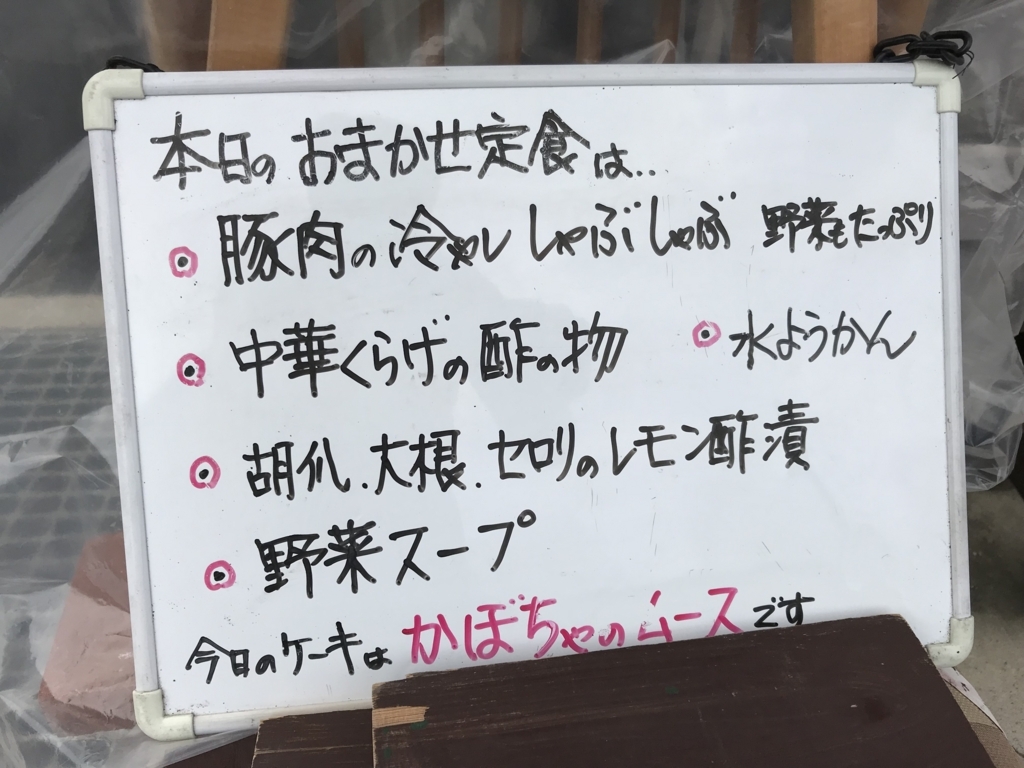 本日のおまかせ定食は..
豚肉の冷やししゃぶしゃぶ 野菜もたっぷり
中華くらげの酢の物
水ようかん
胡瓜、大根、セロリのレモン酢漬
野菜スープ
今日のケーキは かぼちゃのムース です